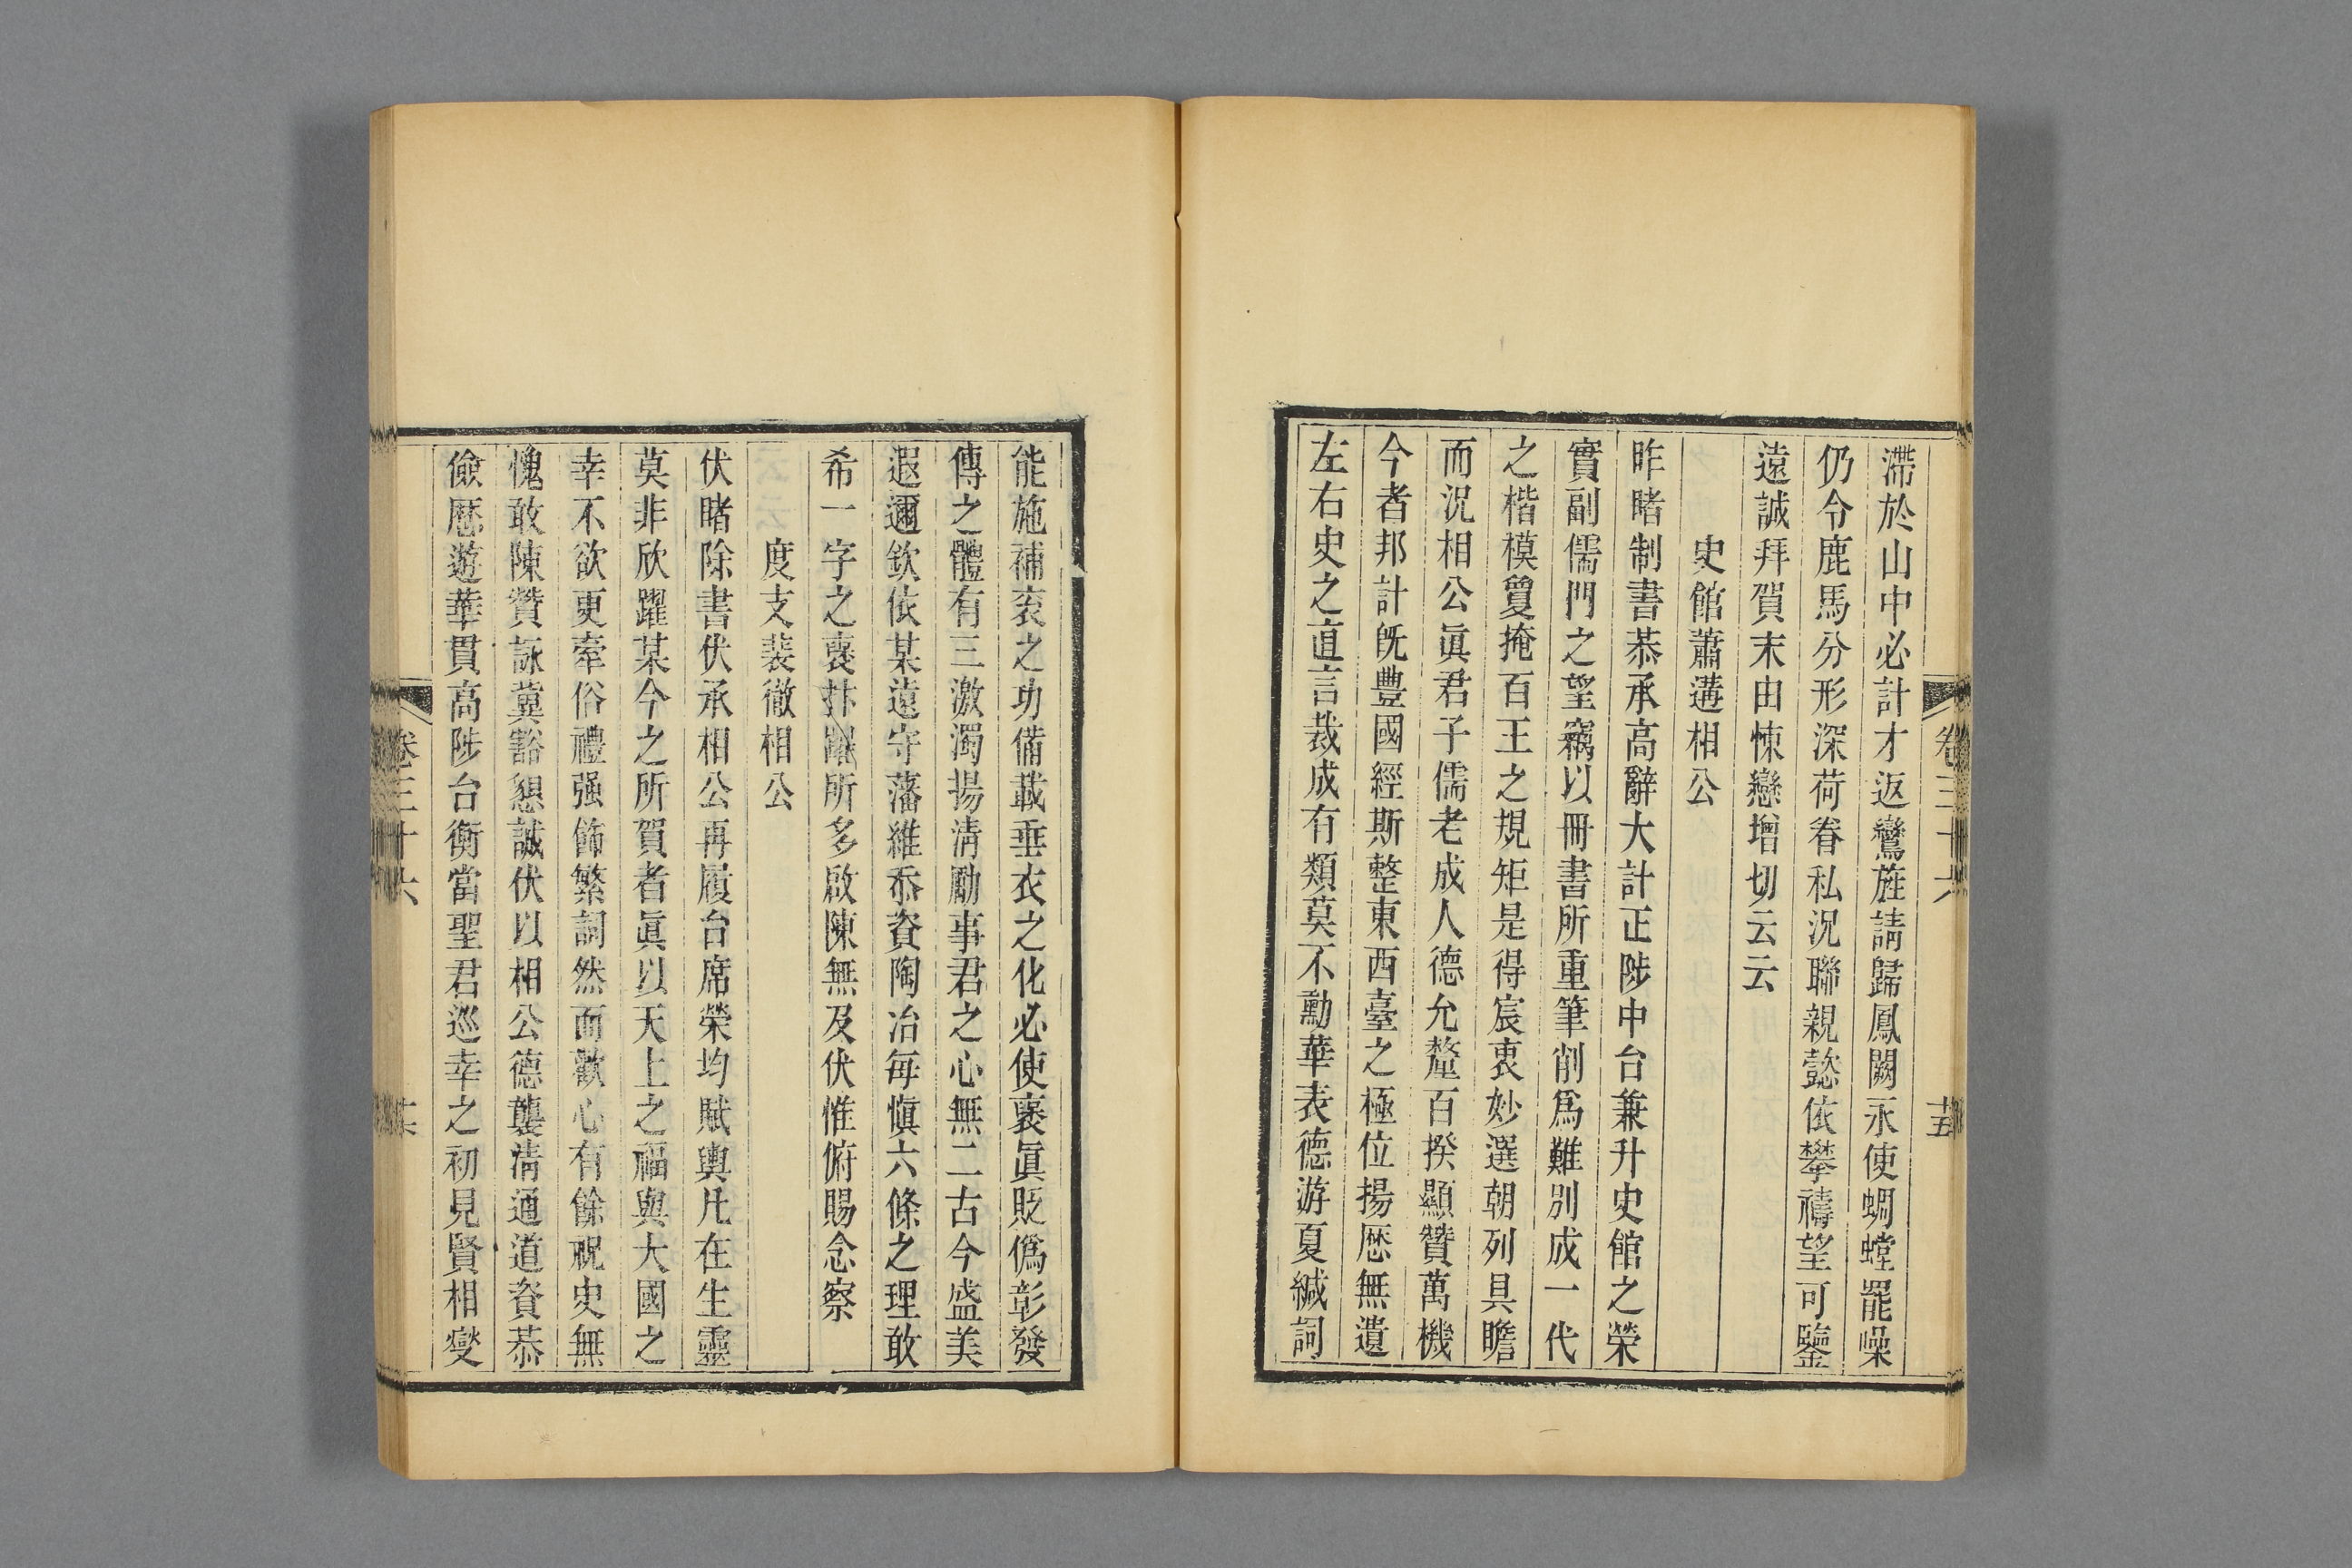 滯於山中必計才返鸞旌請歸鳳闕永使蜩螗罷噪
仍令鹿馬分形深荷眷私況聯親懿依攀禱望可鑒
遠誠拜賀末由悚戀增切云云
史館蕭遘相公
昨睹制書恭承高辭大計正陟中台兼升史館之榮
實副儒門之望竊以冊書所重筆削爲難別成一代
之楷模敻掩百王之規矩是得宸衷妙選朝列具瞻
而況相公眞君子儒老成人德允釐百揆顯贊萬機
今者邦計旣豐國經斯整東西臺之極位揚歷無遺
左右史之直言裁成有類莫不勳華表德游夏緘詞
卷三十六
十五
能施補衮之功備載垂衣之化必使褒眞貶僞彰發
傳之體有三激濁揚淸勵事君之心無二古今盛美
遐邇欽依某遠守藩維忝資陶冶每愼六條之理敢
希一字之褒抃躍所多啟陳無及伏惟俯賜念察
度支裴徹相公
伏睹除書伏承相公再履台席榮均賦輿凡在生靈
莫非欣躍某今之所賀者眞以天上之福與大國之
幸不欲更牽俗禮强飾繁詞然而歡心有餘祝史無
愧敢陳贊詠冀豁懇誠伏以相公德襲淸通道資恭
儉歷遊華貫高陟台衡當聖君巡幸之初見賢相燮
卷三十六